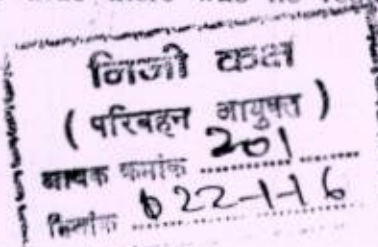 निजी कक्ष
( परिवहन आयुक्त )
आवक क्रमांक 201
दिनांक 22-1-16